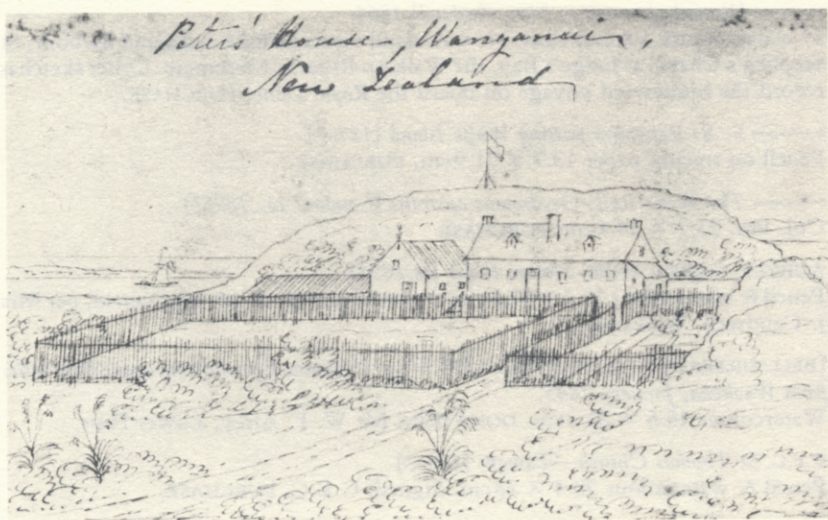 Peters' House, Wanganui,
New Zealand